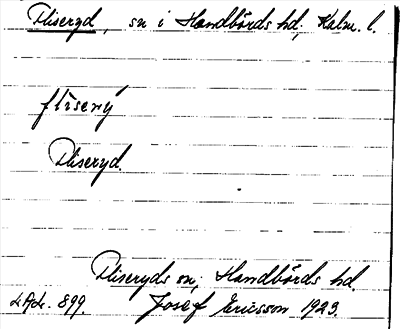 Fliseryd, sn i Handbörds hd, Kalm. l.
flisery
Fliseryd.
Fliseryds sn, Handbörds hd.
LAL. 899. Josef Ericsson 1923.